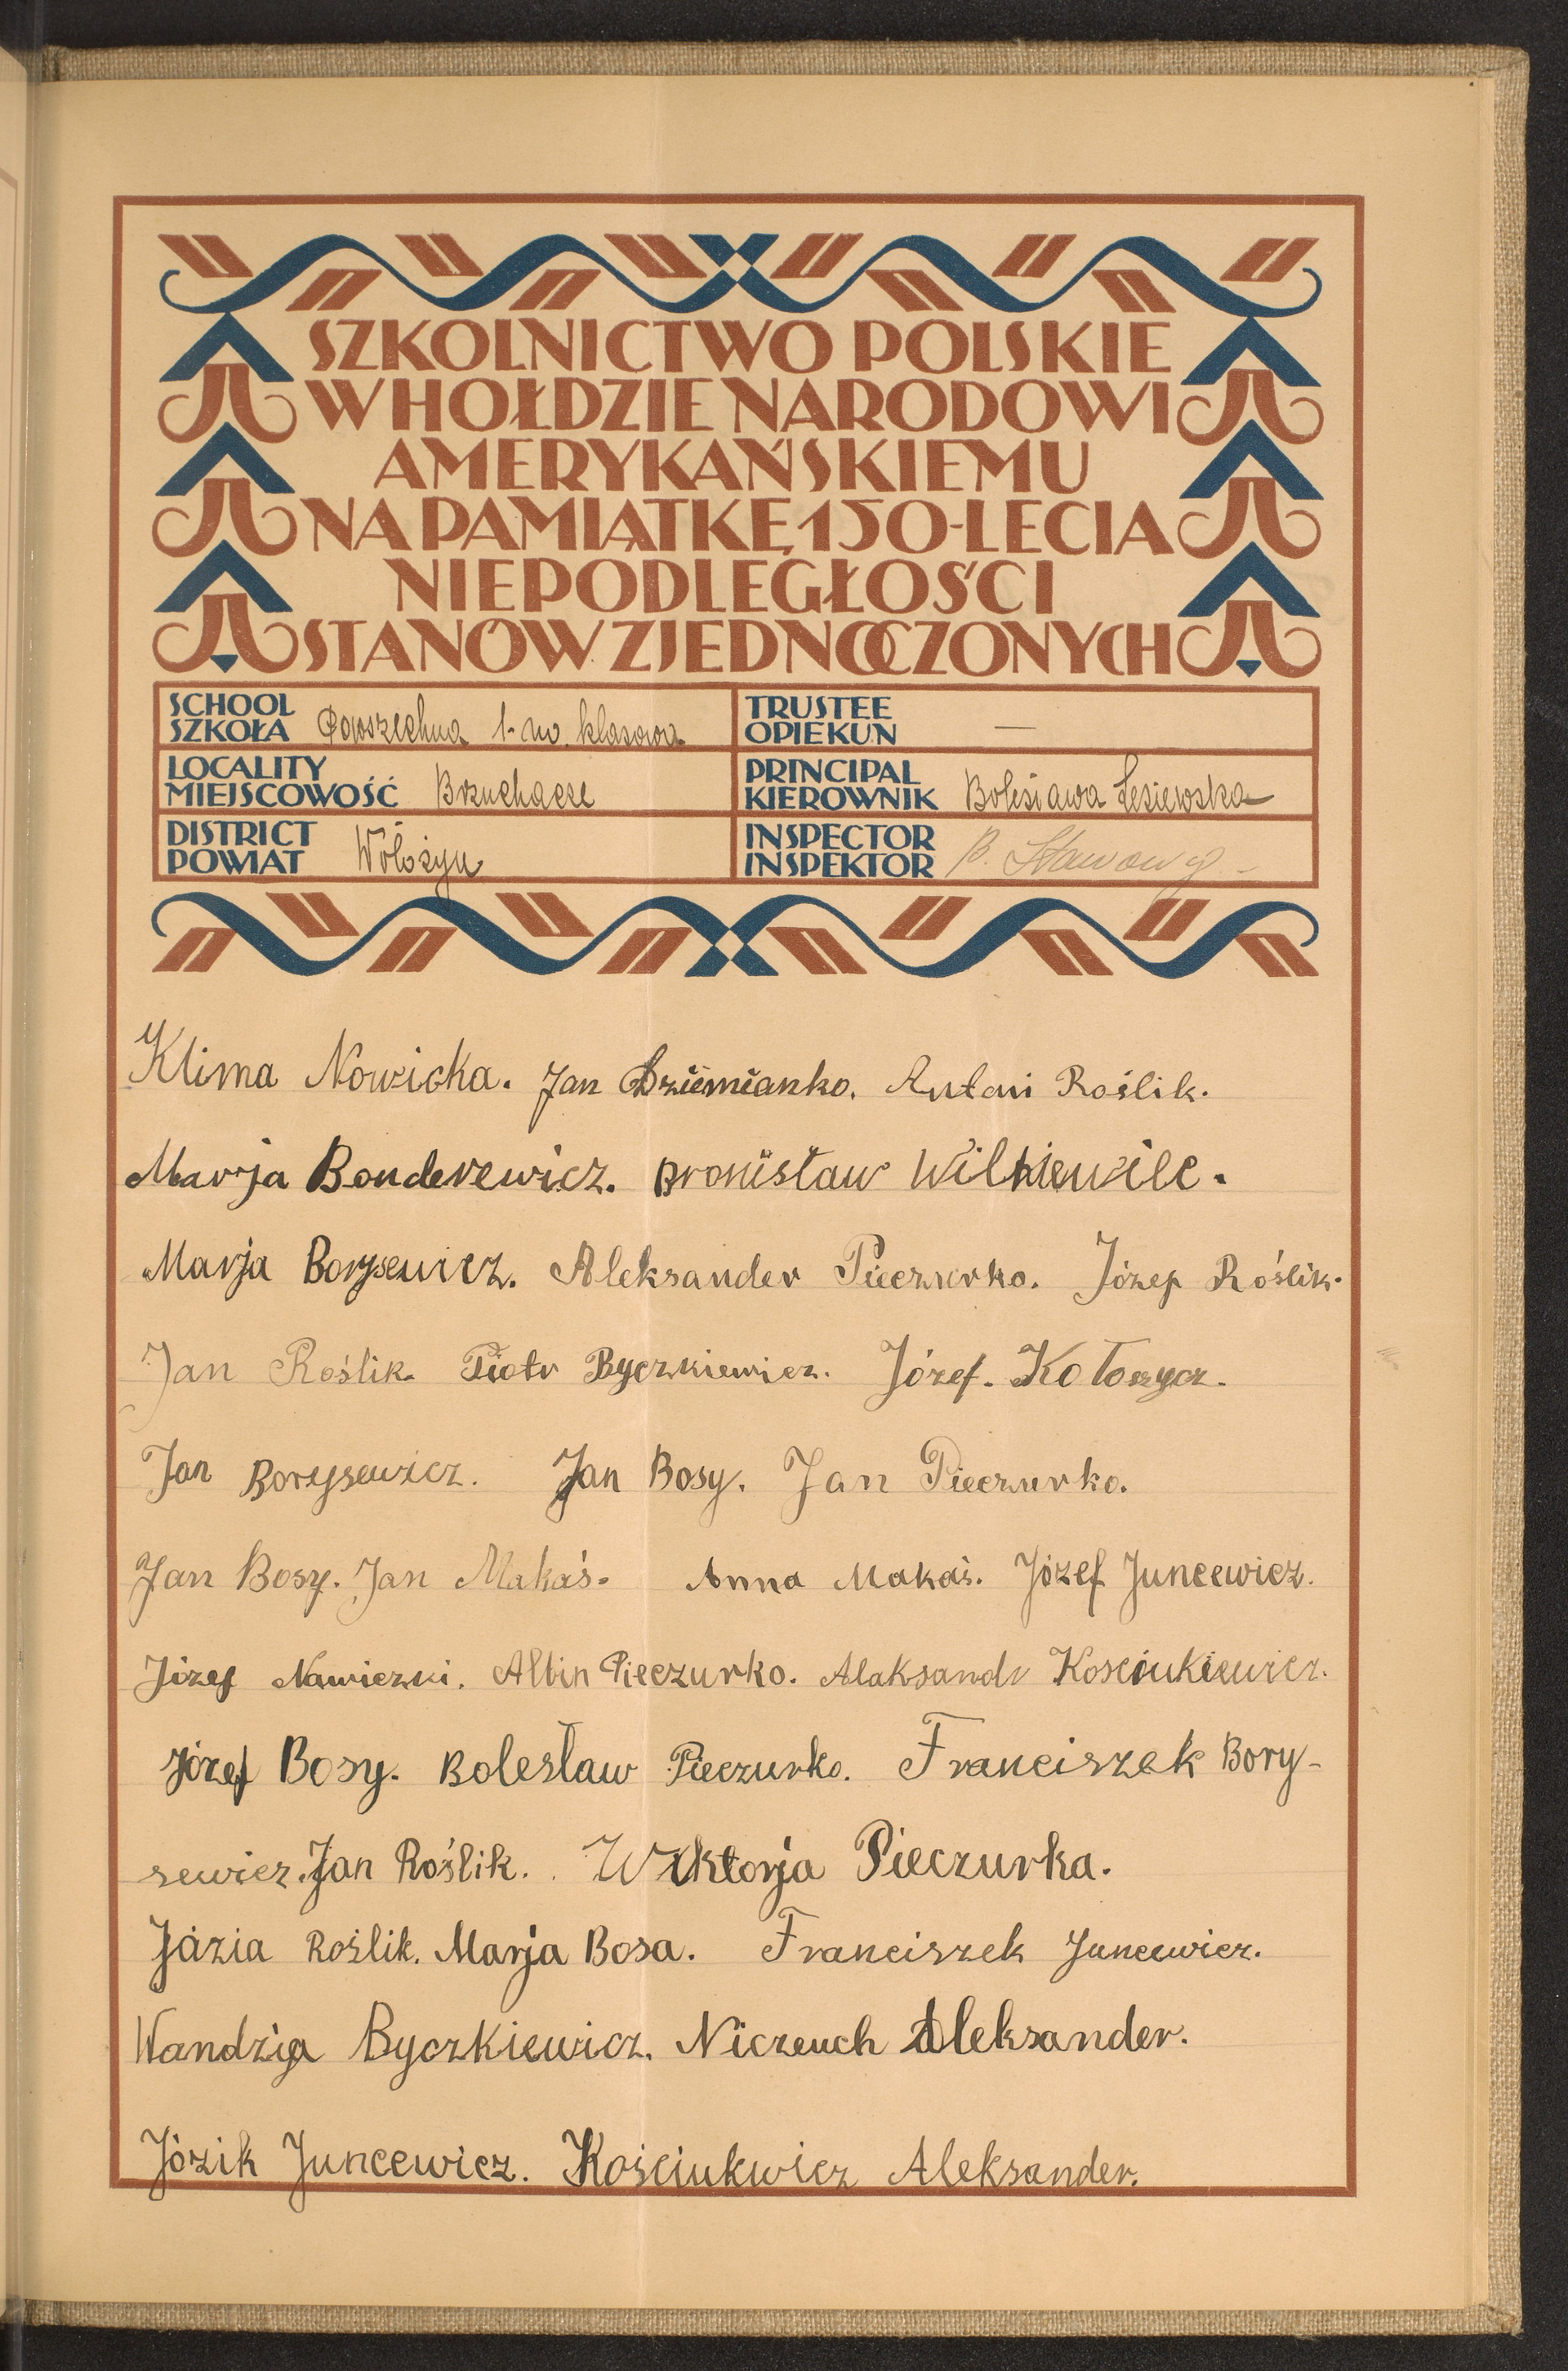 SZKOLNICTWO POLSKIE
W HOŁDZIE NARODOWI
AMERYKAŃSKIEMU
NA PAMIĄTKĘ 150-LECIA
NIEPODLEGŁOŚCI
STANÓW ZJEDNOCZONYCH
SCHOOL
SZKOŁA Powszechna 1-no klasowa
TRUSTEE
OPIEKUN —
LOCALITY
MIEJSCOWOŚĆ Brzuchacze
PRINCIPAL
KIEROWNIK Bolesława Lesiewska
DISTRICT
POWIAT Wołożyn
INSPECTOR
INSPEKTOR B.
Klima Nowicka. Jan Dziemianko. Antoni Roślik.
Marja Bonderewicz. Bronisław Wilkiewicc.
Marja Borysewicz. Aleksander Pieczurko. Józef Roślik.
Jan Roślik. Piotr Byczkiewicz. Józef. Kołoszycz.
Jan Borysewicz. Jan Bosy. Jan Pieczurko.
Jan Bosy. Jan Makaś. Anna Makaś. Józef Juncewicz.
Józef Nawiczki. Albin Pieczurko. Alaksandr Kosciukiewicz.
Józef Bosy. Bolesław Pieczurko. Franciszek Bory-
sewicz. Jan Roślik. Wiktorja Pieczurka.
Józia Roślik. Marja Bosa. Franciszek Juncewicz.
Wandzia Byczkiewicz. Niczeuch Aleksander.
Józik Juncewicz. Kościukwicz Aleksander.